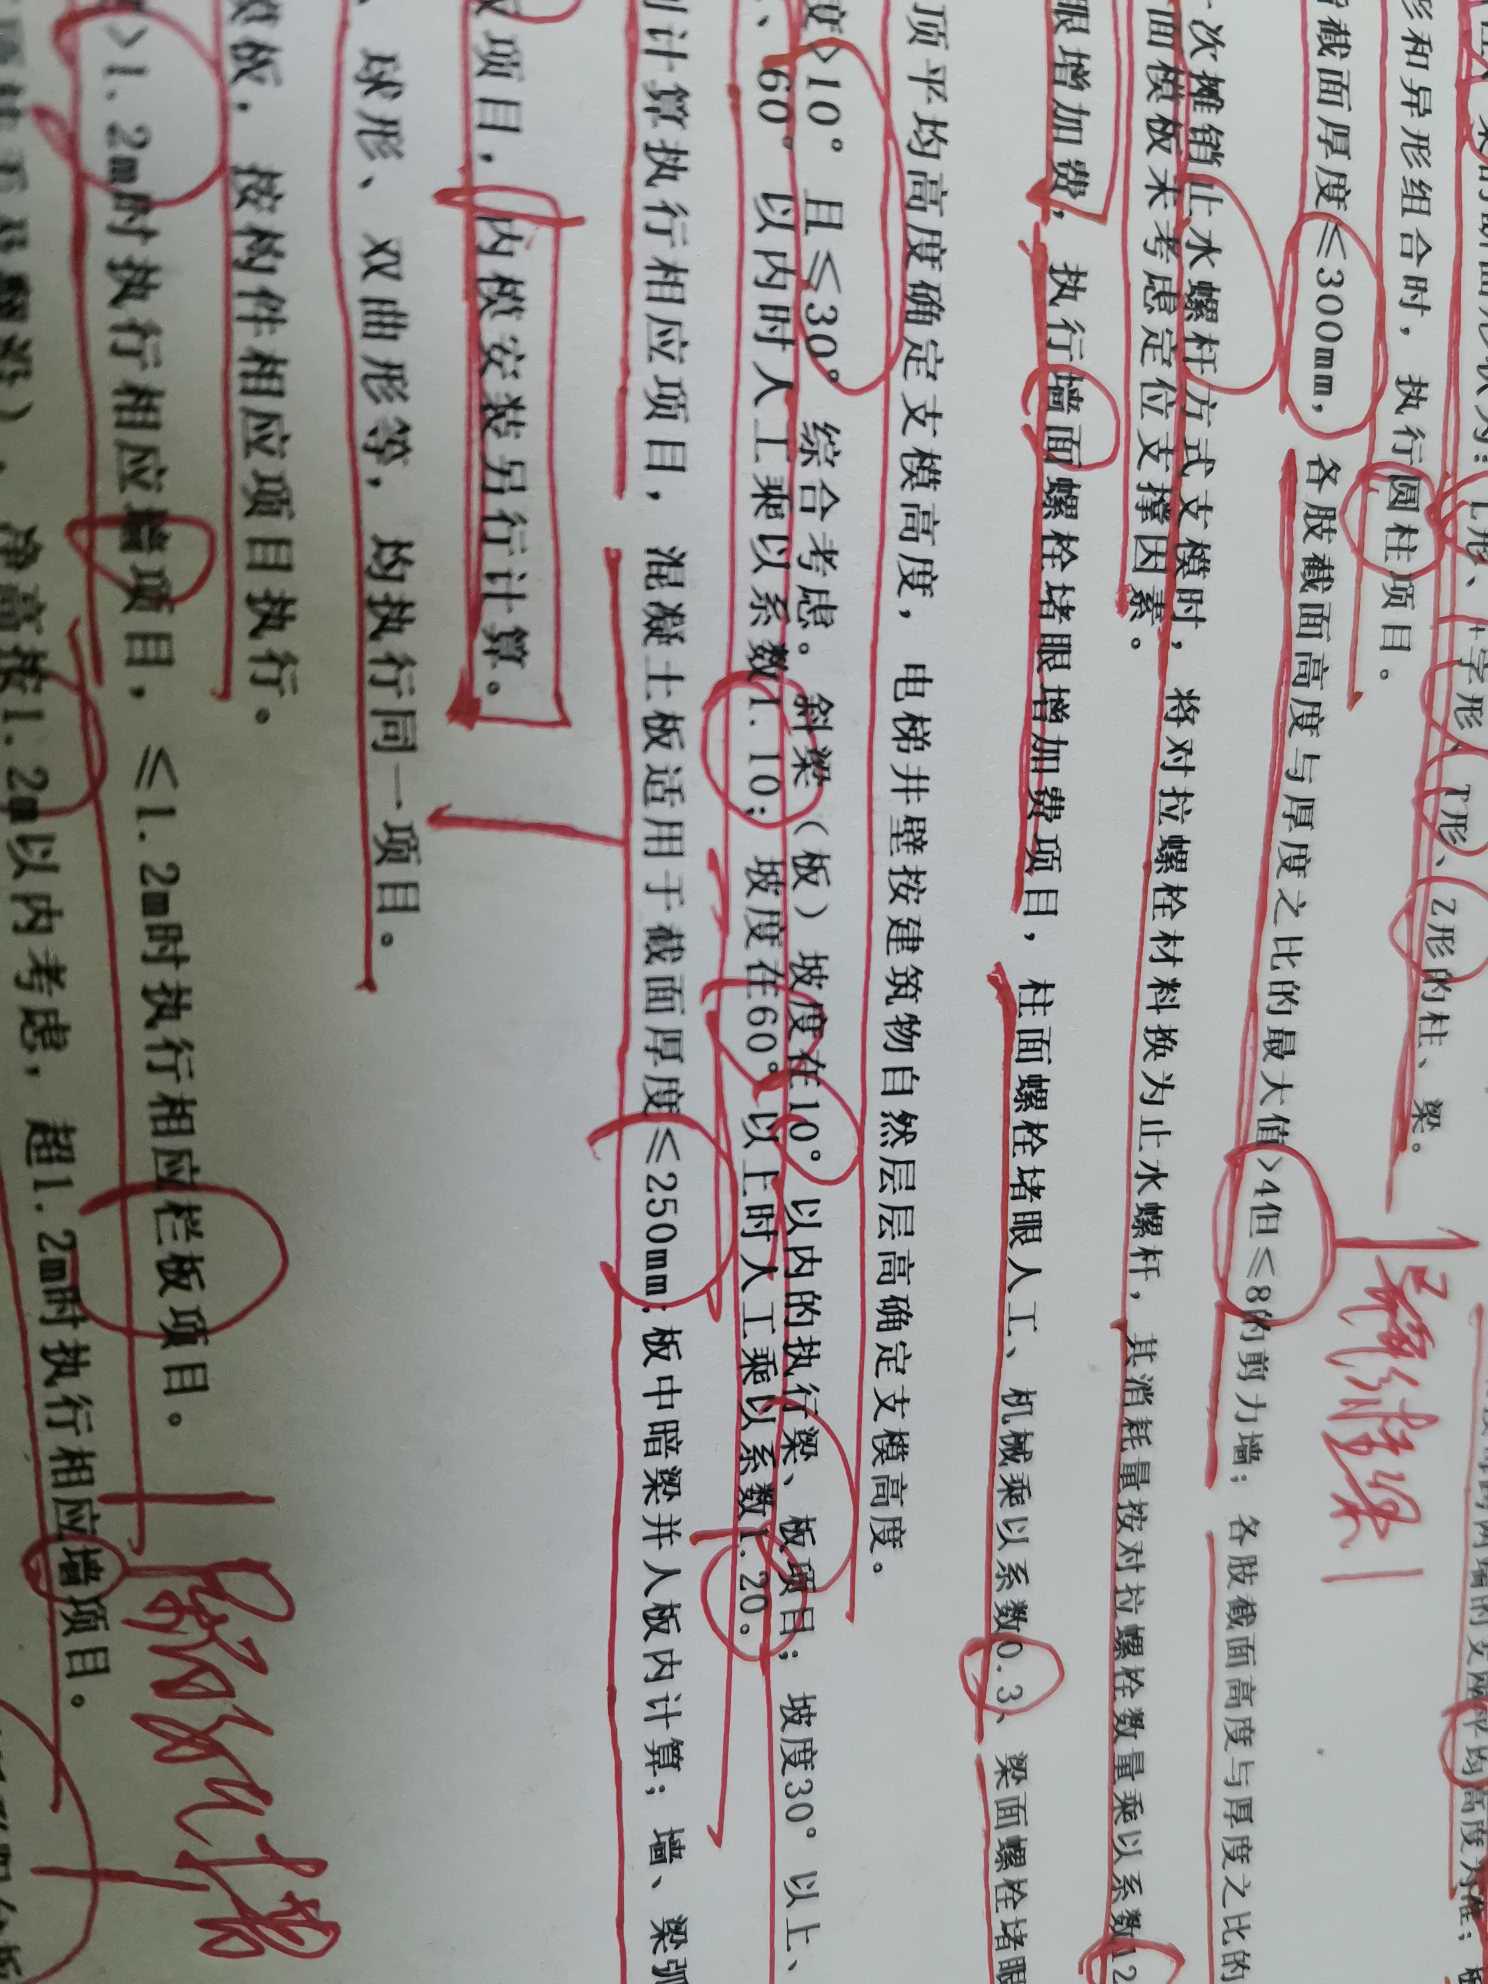 L形、十字形、T形、Z形的柱、梁。
形和异形组合时，执行圆柱项目。
截面厚度≤300mm，各肢截面高度与厚度之比的最大值>4但≤8的剪力墙；各肢截面高度与厚度之比的
次摊销止水螺杆方式支模时，将对拉螺栓材料换为止水螺杆，其消耗量按对拉螺栓数量乘以系数12
面模板未考虑定位支撑因素。
眼增加费，执行墙面螺栓堵眼增加费项目，柱面螺栓堵眼人工、机械乘以系数0.3、梁面螺栓堵眼
顶平均高度确定支模高度，电梯井壁按建筑物自然层层高确定支模高度。
>10°且≤30°综合考虑。斜梁（板）坡度在10°以内的执行梁、板项目；坡度30°以上、
60°以内时人工乘以系数1.10；坡度在60°以上时人工乘以系数1.20。
计算执行相应项目，混凝土板适用于截面厚度≤250mm；板中暗梁并入板内计算；墙、梁弧
项目，内模安装另行计算。
、球形、双曲形等，均执行同一项目。
模板，按构件相应项目执行。
>1.2m时执行相应墙项目，≤1.2m时执行相应栏板项目。
净高按1.2m以内考虑，超1.2m时执行相应墙项目。